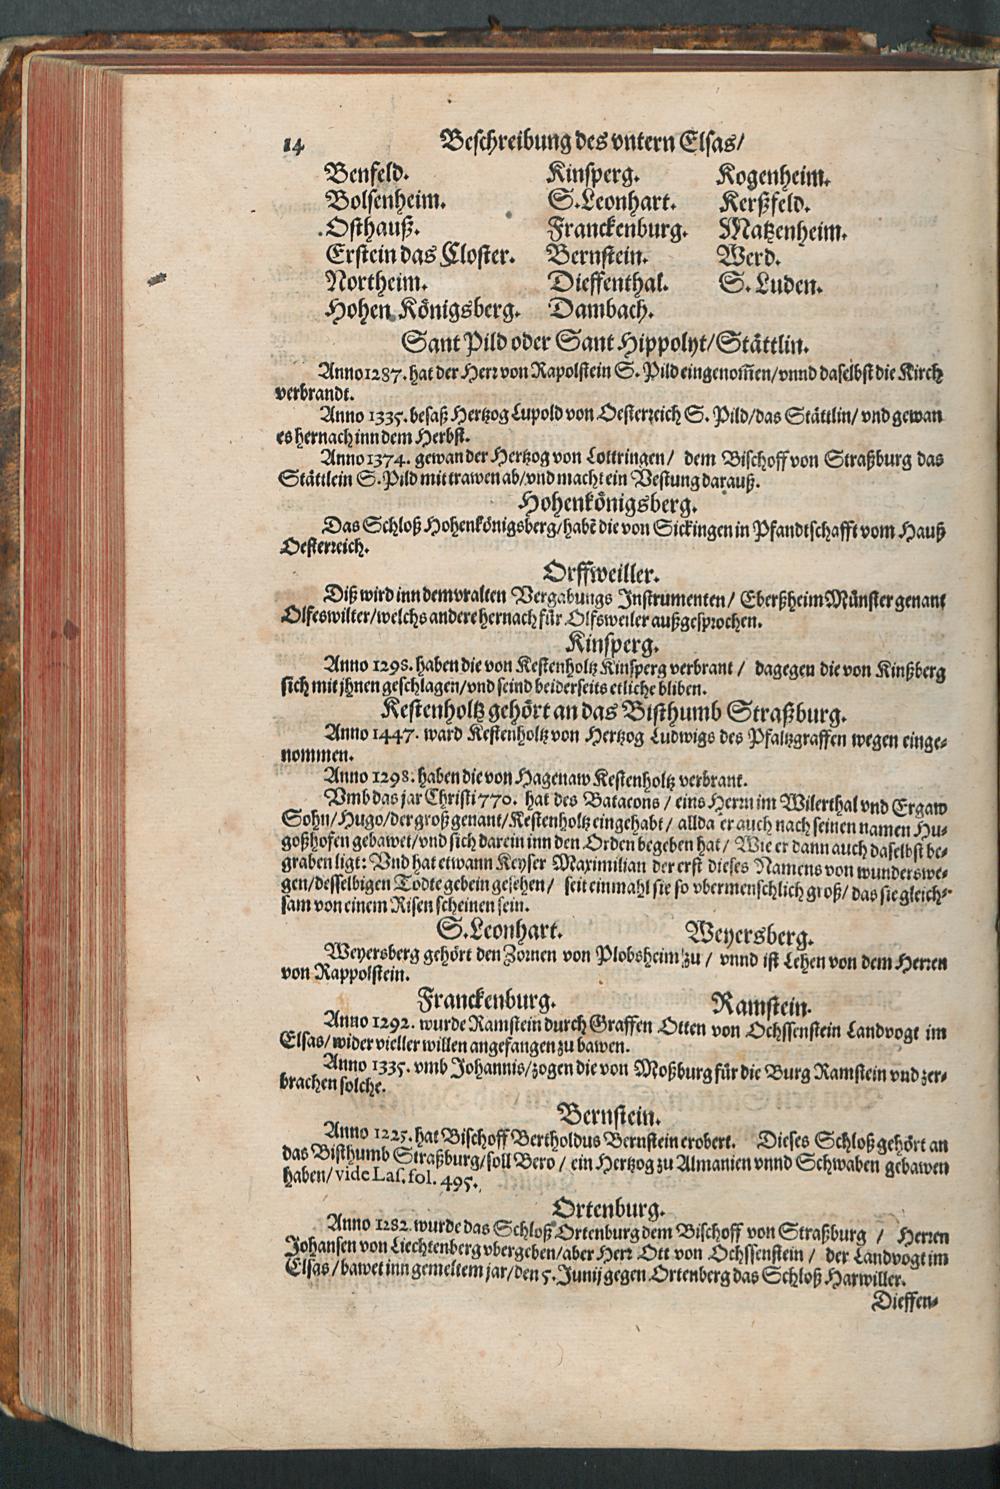 14 Beschreibung des vntern Elsas/
Benfeld. Kinsperg. Kogenheim.
Bolsenheim. S. Leonhart. Kerßfeld.
Osthauß. Franckenburg. Matzenheim.
Erstein das Closter. Bernstein. Werd.
Northeim. Dieffenthal. S. Luden.
Hohen Königsberg. Dambach.
Sant Pild oder Sant Hippolyt/Stättlin.
Anno 1287. hat der Herr von Rapolstein S. Pild eingenom̃en/vnnd daselbst die Kirch
verbrandt.
Anno 1335. besaß Hertzog Lupold von Oesterreich S. Pild/das Stättlin/vnd gewan
es hernach inn dem Herbst.
Anno 1374. gewan der Hertzog von Lottringen/ dem Bischoff von Straßburg das
Stättlein S. Pild mit trawen ab/vnd macht ein Vestung darauß.
Hohenkönigsberg.
Das Schloß Hohenkönigsberg/habẽ die von Sickingen in Pfandtschafft vom Hauß
Oesterreich.
Orffweiller.
Diß wird inn dem vralten Vergabungs Instrumenten/ Eberßheim Münster genant
Olfeswilter/welchs andere hernach für Olfsweiler außgesprochen.
Kinsperg.
Anno 1298. haben die von Kestenholtz Kinsperg verbrant/ dagegen die von Kinßberg
sich mit jhnen geschlagen/vnd seind beiderseits etliche bliben.
Kestenholtz gehört an das Bisthumb Straßburg.
Anno 1447. ward Kestenholtz von Hertzog Ludwigs des Pfaltzgraffen wegen einge-
nommen.
Anno 1298. haben die von Hagenaw Kestenholtz verbrant.
Vmb das jar Christi 770. hat des Batacons/ eins Herrn im Wilerthal vnd Ergaw
Sohn/Hugo/der groß genant/Kestenholtz eingehabt/ allda er auch nach seinen namen Hu-
goßhofen gebawet/vnd sich darein inn den Orden begeben hat/ Wie er dann auch daselbst be-
graben ligt: Vnd hat etwann Keyser Maximilian der erst dieses Namens von wunderswe-
gen/desselbigen Todtegebein gesehen/ seit einmahl sie so vbermenschlich groß/das sie gleich-
sam von einem Risen scheinen sein.
S. Leonhart. Weyersberg.
Weyersberg gehört den Zornen von Plobsheim zu/ vnnd ist Lehen von dem Herren
von Rappolstein.
Franckenburg. Ramstein.
Anno 1292. wurde Ramstein durch Graffen Otten von Ochssenstein Landvogt im
Elsas/wider vieller willen angefangen zu bawen.
Anno 1335. vmb Johannis/zogen die von Moßburg für die Burg Ramstein vnd zer-
brachen solche.
Bernstein.
Anno 1225. hat Bischoff Bertholdus Bernstein erobert. Dieses Schloß gehört an
das Bisthumb Straßburg/soll Bero/ ein Hertzog zu Almanien vnnd Schwaben gebawen
haben/vide Las. fol. 495.
Ortenburg.
Anno 1282. wurde das Schloß Ortenburg dem Bischoff von Straßburg/ Herren
Johansen von Liechtenberg vbergeben/aber Herr Ott von Ochssenstein/ der Landvogt im
Elsas/bawet inn gemeltem jar/den 5. Junij gegen Ortenberg das Schloß Harwiller.
Dieffen-